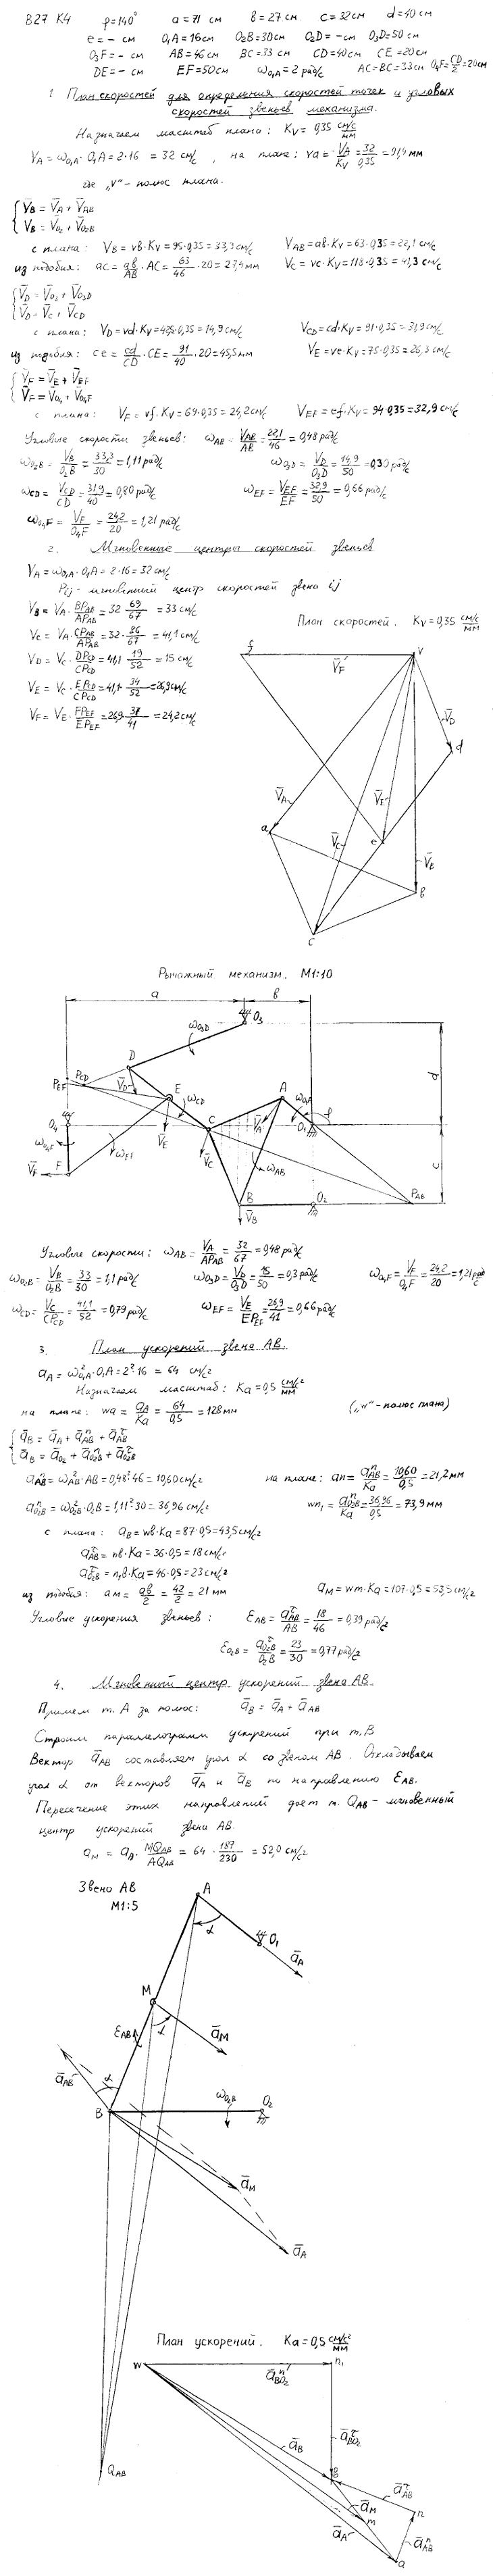 В27 К4 φ=140° a=71 см в=27 см c=32см d=40см
e=- см O₁A=16см O₂B=30см O₂D=-см O₃D=50см
O₃F=- см AB=46см BC=33 см CD=40см CE=20см
DE=- см EF=50см ω₀₁A=2 рад/с AC=BC=33см O₄F=CD/2=20см
1 План скоростей для определения скоростей точек и угловых
скоростей звеньев механизма.
Назначаем масштаб плана: Kv=0,35 см/с/мм
VA=ω₀₁A·O₁A=2·16=32 см/с, на плане: va=VA/Kv=32/0,35=91,4мм
где „v"-полюс плана.
{V̄B=V̄A+V̄AB
V̄B=V̄O₂+V̄O₂B
с плана: VB=vв·Kv=95·0,35=33,3см/с VAB=aв·Kv=63·0,35=22,1 см/с
из подобия: ac=aв/AB·AC=63/46·20=27,4мм VC=vc·Kv=118·0,35=41,3 см/с
{V̄D=V̄O₃+V̄O₃D
V̄D=V̄C+V̄CD
с плана: VD=vd·Kv=42,5·0,35=14,9см/с VCD=cd·Kv=91·0,35=31,9см/с
из подобия: ce=cd/CD·CE=91/40·20=45,5мм VE=ve·Kv=75·0,35=26,3 см/с
{V̄F=V̄E+V̄EF
V̄F=V̄O₄+V̄O₄F
с плана: VF=vf·Kv=69·0,35=24,2см/с VEF=ef·Kv=94·0,35=32,9см/с
Угловые скорости звеньев: ωAB=VAB/AB=22,1/46=0,48рад/с
ωO₂B=VB/O₂B=33,3/30=1,11рад/с ωO₃D=VD/O₃D=14,9/50=0,30рад/с
ωCD=VCD/CD=31,9/40=0,80рад/с ωEF=VEF/EF=32,9/50=0,66рад/с
ωO₄F=VF/O₄F=24,2/20=1,21рад/с
2. Мгновенные центры скоростей звеньев
VA=ω₀₁A·O₁A=2·16=32см/с
Pij-мгновенный центр скоростей звена ij
VB=VA·BPAB/APAB=32·69/67=33см/с
VC=VA·CPAB/APAB=32·86/67=41,1см/с
VD=VC·DPCD/CPCD=41,1·19/52=15см/с
VE=VC·EPCD/CPCD=41,1·34/52=26,9см/с
VF=VE·FPEF/EPEF=26,9·37/41=24,2см/с
План скоростей. Kv=0,35 см/с/мм
f V̄F v
V̄D
d
V̄A V̄E
a V̄C e
V̄B
в
c
Рычажный механизм. М1:10
a в
ωO₃D O₃
D
PEF PCD V̄D E ωCD A ωO₁A φ d
O₄ V̄E C V̄A O₁
ωO₄F ωEF V̄C ωAB c
V̄F F
B O₂ PAB
V̄B
Угловые скорости: ωAB=VA/APAB=32/67=0,48рад/с
ωO₂B=VB/O₂B=33/30=1,1рад/с ωO₃D=VD/O₃D=15/50=0,3рад/с ωO₄F=VF/O₄F=24,2/20=1,21рад/с
ωCD=VC/CPCD=41,1/52=0,79рад/с ωEF=VE/EPEF=26,9/41=0,66рад/с
3. План ускорений звена АВ.
aA=ω²O₁A·O₁A=2²·16=64 см/с²
Назначаем масштаб: Ka=0,5 см/с²/мм
на плане: wa=aA/Ka=64/0,5=128мм („w"-полюс плана)
{āB=āA+āⁿAB+āᵗAB
āB=āO₂+āⁿO₂B+āᵗO₂B
aⁿAB=ω²AB·AB=0,48²·46=10,60см/с² на плане: an=aⁿAB/Ka=10,60/0,5=21,2мм
aⁿO₂B=ω²O₂B·O₂B=1,11²·30=36,96см/с² wn₁=aⁿO₂B/Ka=36,96/0,5=73,9мм
с плана: aB=wв·Ka=87·0,5=43,5см/с²
aᵗAB=nв·Ka=36·0,5=18см/с²
aᵗO₂B=n₁в·Ka=46·0,5=23см/с²
из подобия: am=aв/2=42/2=21мм aM=wm·Ka=107·0,5=53,5см/с²
Угловые ускорения звеньев: εAB=aᵗAB/AB=18/46=0,39рад/с²
εO₂B=aᵗO₂B/O₂B=23/30=0,77рад/с²
4. Мгновенный центр ускорений звена АВ.
Примем т. А за полюс: āB=āA+āAB
Строим параллелограмм ускорений при т.В
Вектор āAB составляет угол α со звеном АВ. Откладываем
угол α от векторов āA и āB по направлению εAB.
Пересечение этих направлений дает т. QAB-мгновенный
центр ускорений звена АВ.
aM=aA·MQAB/AQAB=64·187/230=52,0см/с²
Звено АВ
М1:5
A
α O₁
āA
M
εAB α āM
āAB α
B ωO₂B O₂
āM
āA
QAB
План ускорений. Ka=0,5 см/с²/мм
w āⁿBO₂ n₁
āB āᵗBO₂
в āᵗAB
āM n
āA m āⁿAB
a